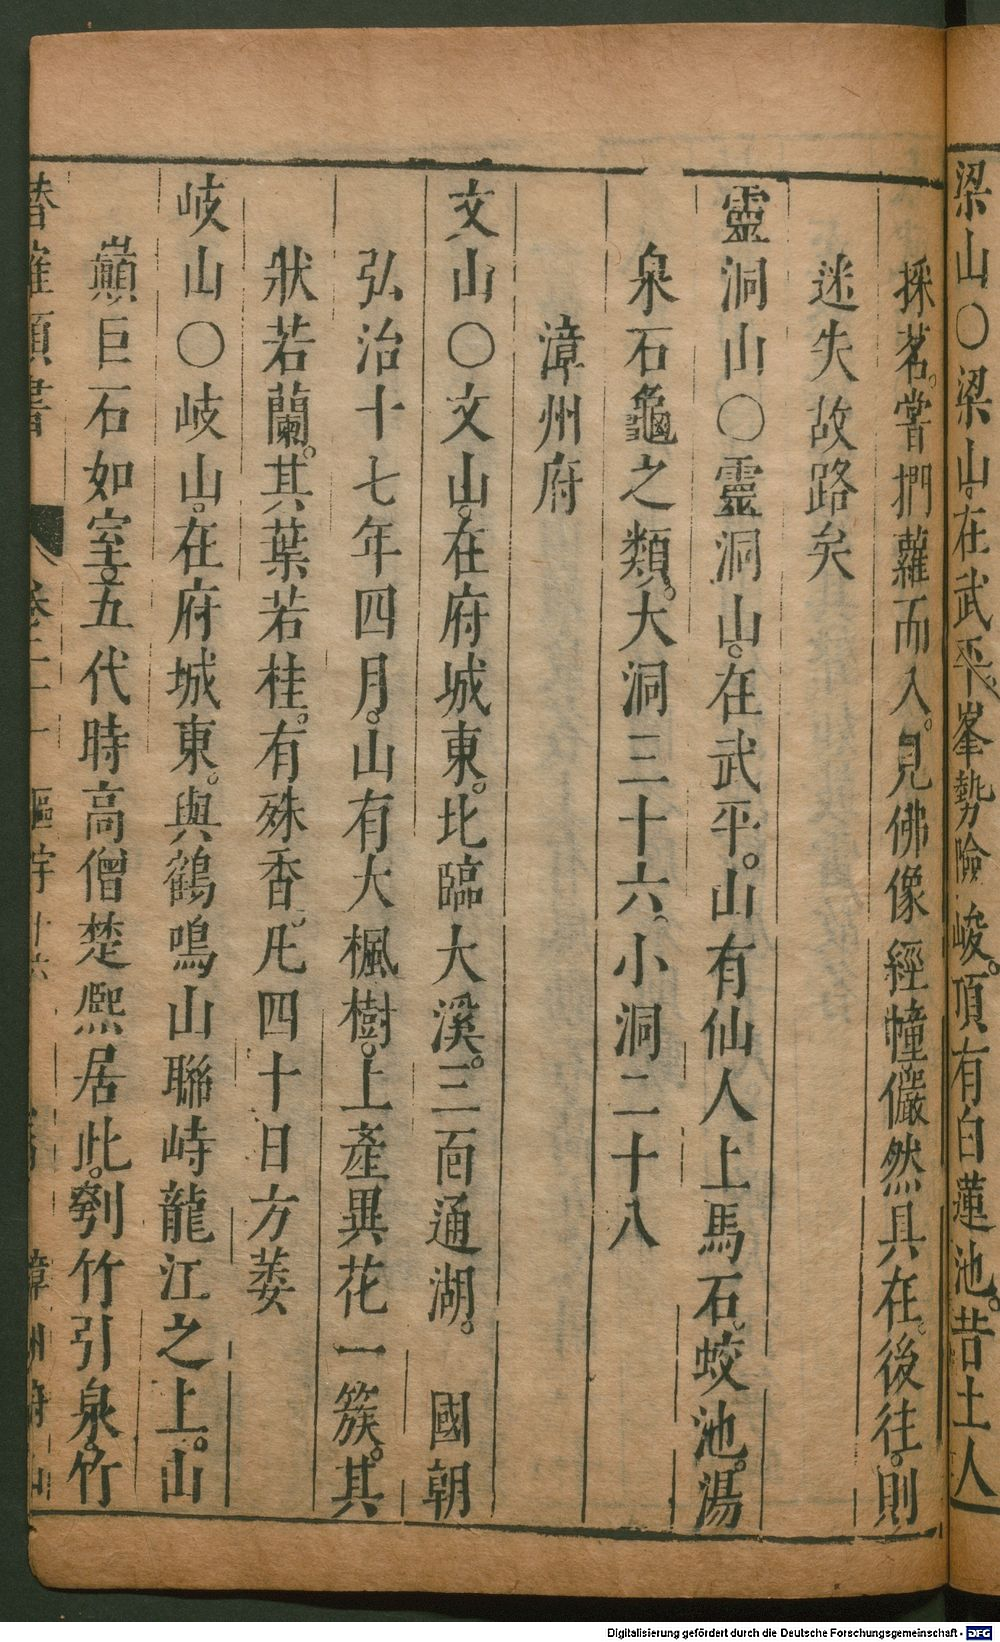 梁山○梁山。在武平。峯勢險峻。頂有白蓮池。昔土人
採茗。嘗捫蘿而入。見佛像經幢儼然具在。後往。則
迷失故路矣
靈洞山○靈洞山。在武平。山有仙人上馬石。蛟池。湯
泉石龜之類。大洞三十六。小洞二十八
漳州府
文山○文山。在府城東。北臨大溪。三面通湖。 國朝
弘治十七年四月。山有大楓樹。上產異花一簇。其
狀若蘭。其葉若桂。有殊香。凡四十日方萎
岐山○岐山。在府城東。與鶴鳴山聯峙龍江之上。山
巔巨石如室。五代時高僧楚熈居此。刳竹引泉。竹
Digitalisierung gefördert durch die Deutsche Forschungsgemeinschaft - DFG